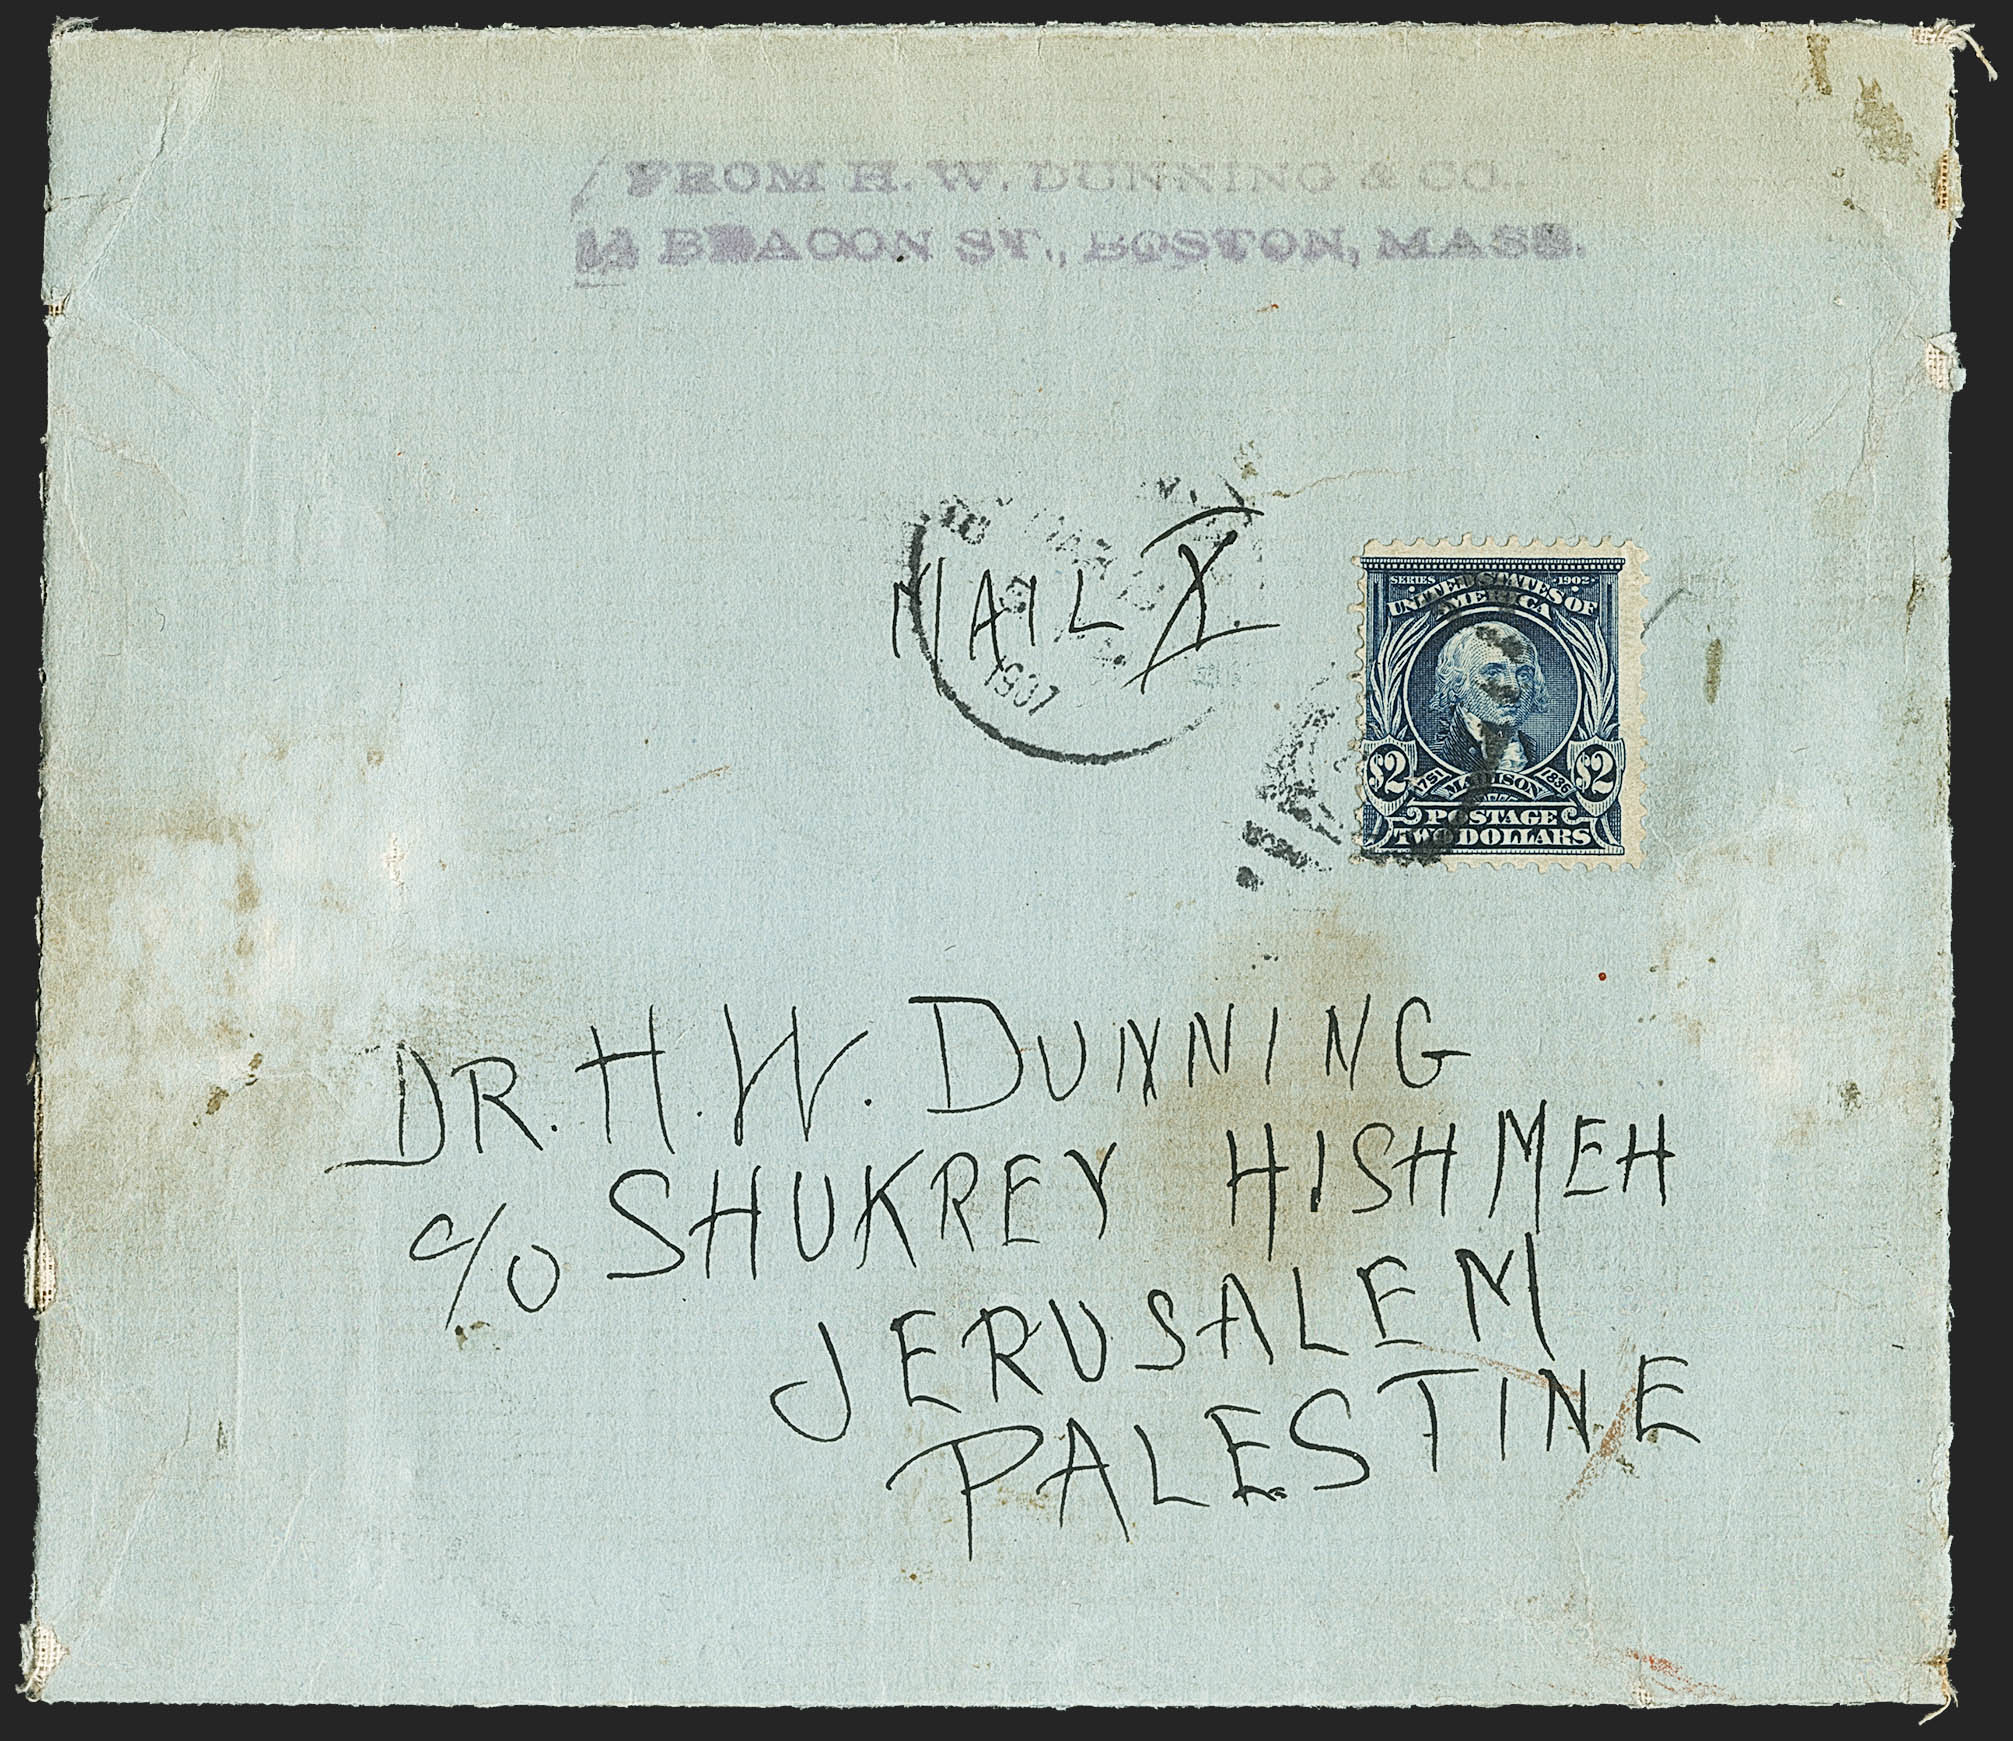 FROM H. W. DUNNING & CO.,
14 BEACON ST., BOSTON, MASS.
MAIL X.
MAR
1907
SERIES 1902
UNITED STATES OF
AMERICA
$2 1751 MADISON 1836 $2
POSTAGE
TWO DOLLARS
DR. H. W. DUNNING
c/o SHUKREY HISHMEH
JERUSALEM
PALESTINE